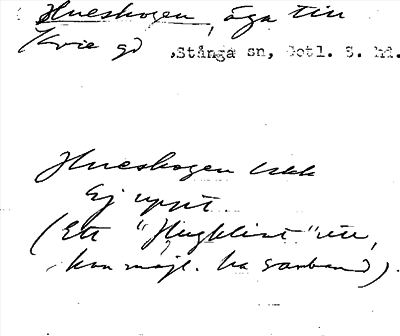 Hueskogen, äga till
Kvie gd , Stånga sn, Gotl. S. hd.
Hueskogen Ukk
Ej uppt.
(Ett "Hugklint" utt,
kan möjl. ha samband).